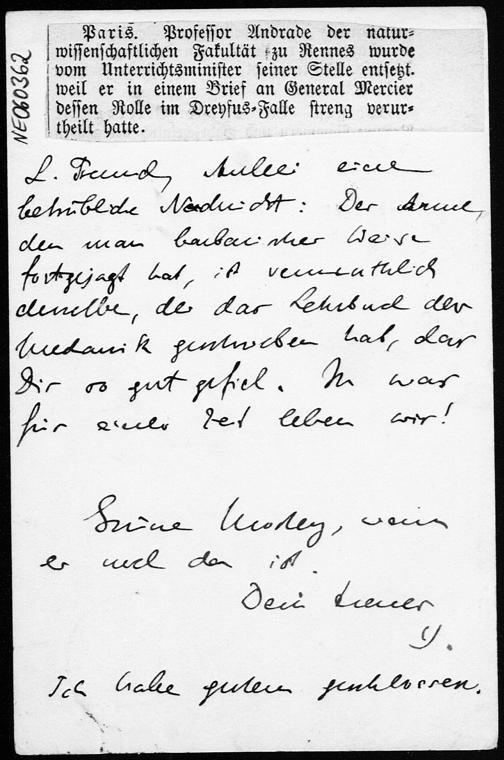 NE060362
Paris. Professor Andrade der natur-
wissenschaftlichen Fakultät zu Rennes wurde
vom Unterrichtsminister seiner Stelle entsetzt.
weil er in einem Brief an General Mercier
dessen Rolle im Dreyfus-Falle streng verur-
theilt hatte.
L. Freund, Anbei eine
betrübliche Nachricht: Der Arme,
den man barbarischer Weise
fortgejagt hat, ist vermuthlich
derselbe, der das Lehrbuch der
Mechanik geschrieben hat, das
Dir so gut gefiel. In was
für einer Zeit leben wir!
Grüsse, wenn
er noch da ist.
Dein treuer
Ich habe gestern geschlossen.